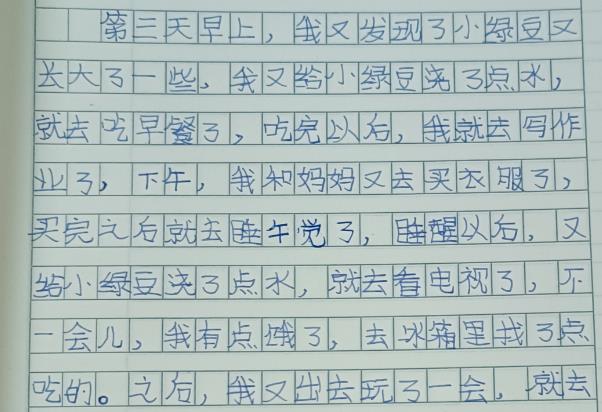 第三天早上，我又发现了小绿豆又
长大了一些，我又给小绿豆浇了点水，
就去吃早餐了，吃完以后，我就去写作
业了，下午，我和妈妈又去买衣服了，
买完之后就去睡午觉了，睡醒以后，又
给小绿豆浇了点水，就去看电视了，不
一会儿，我有点饿了，去冰箱里找了点
吃的。之后，我又出去玩了一会，就去